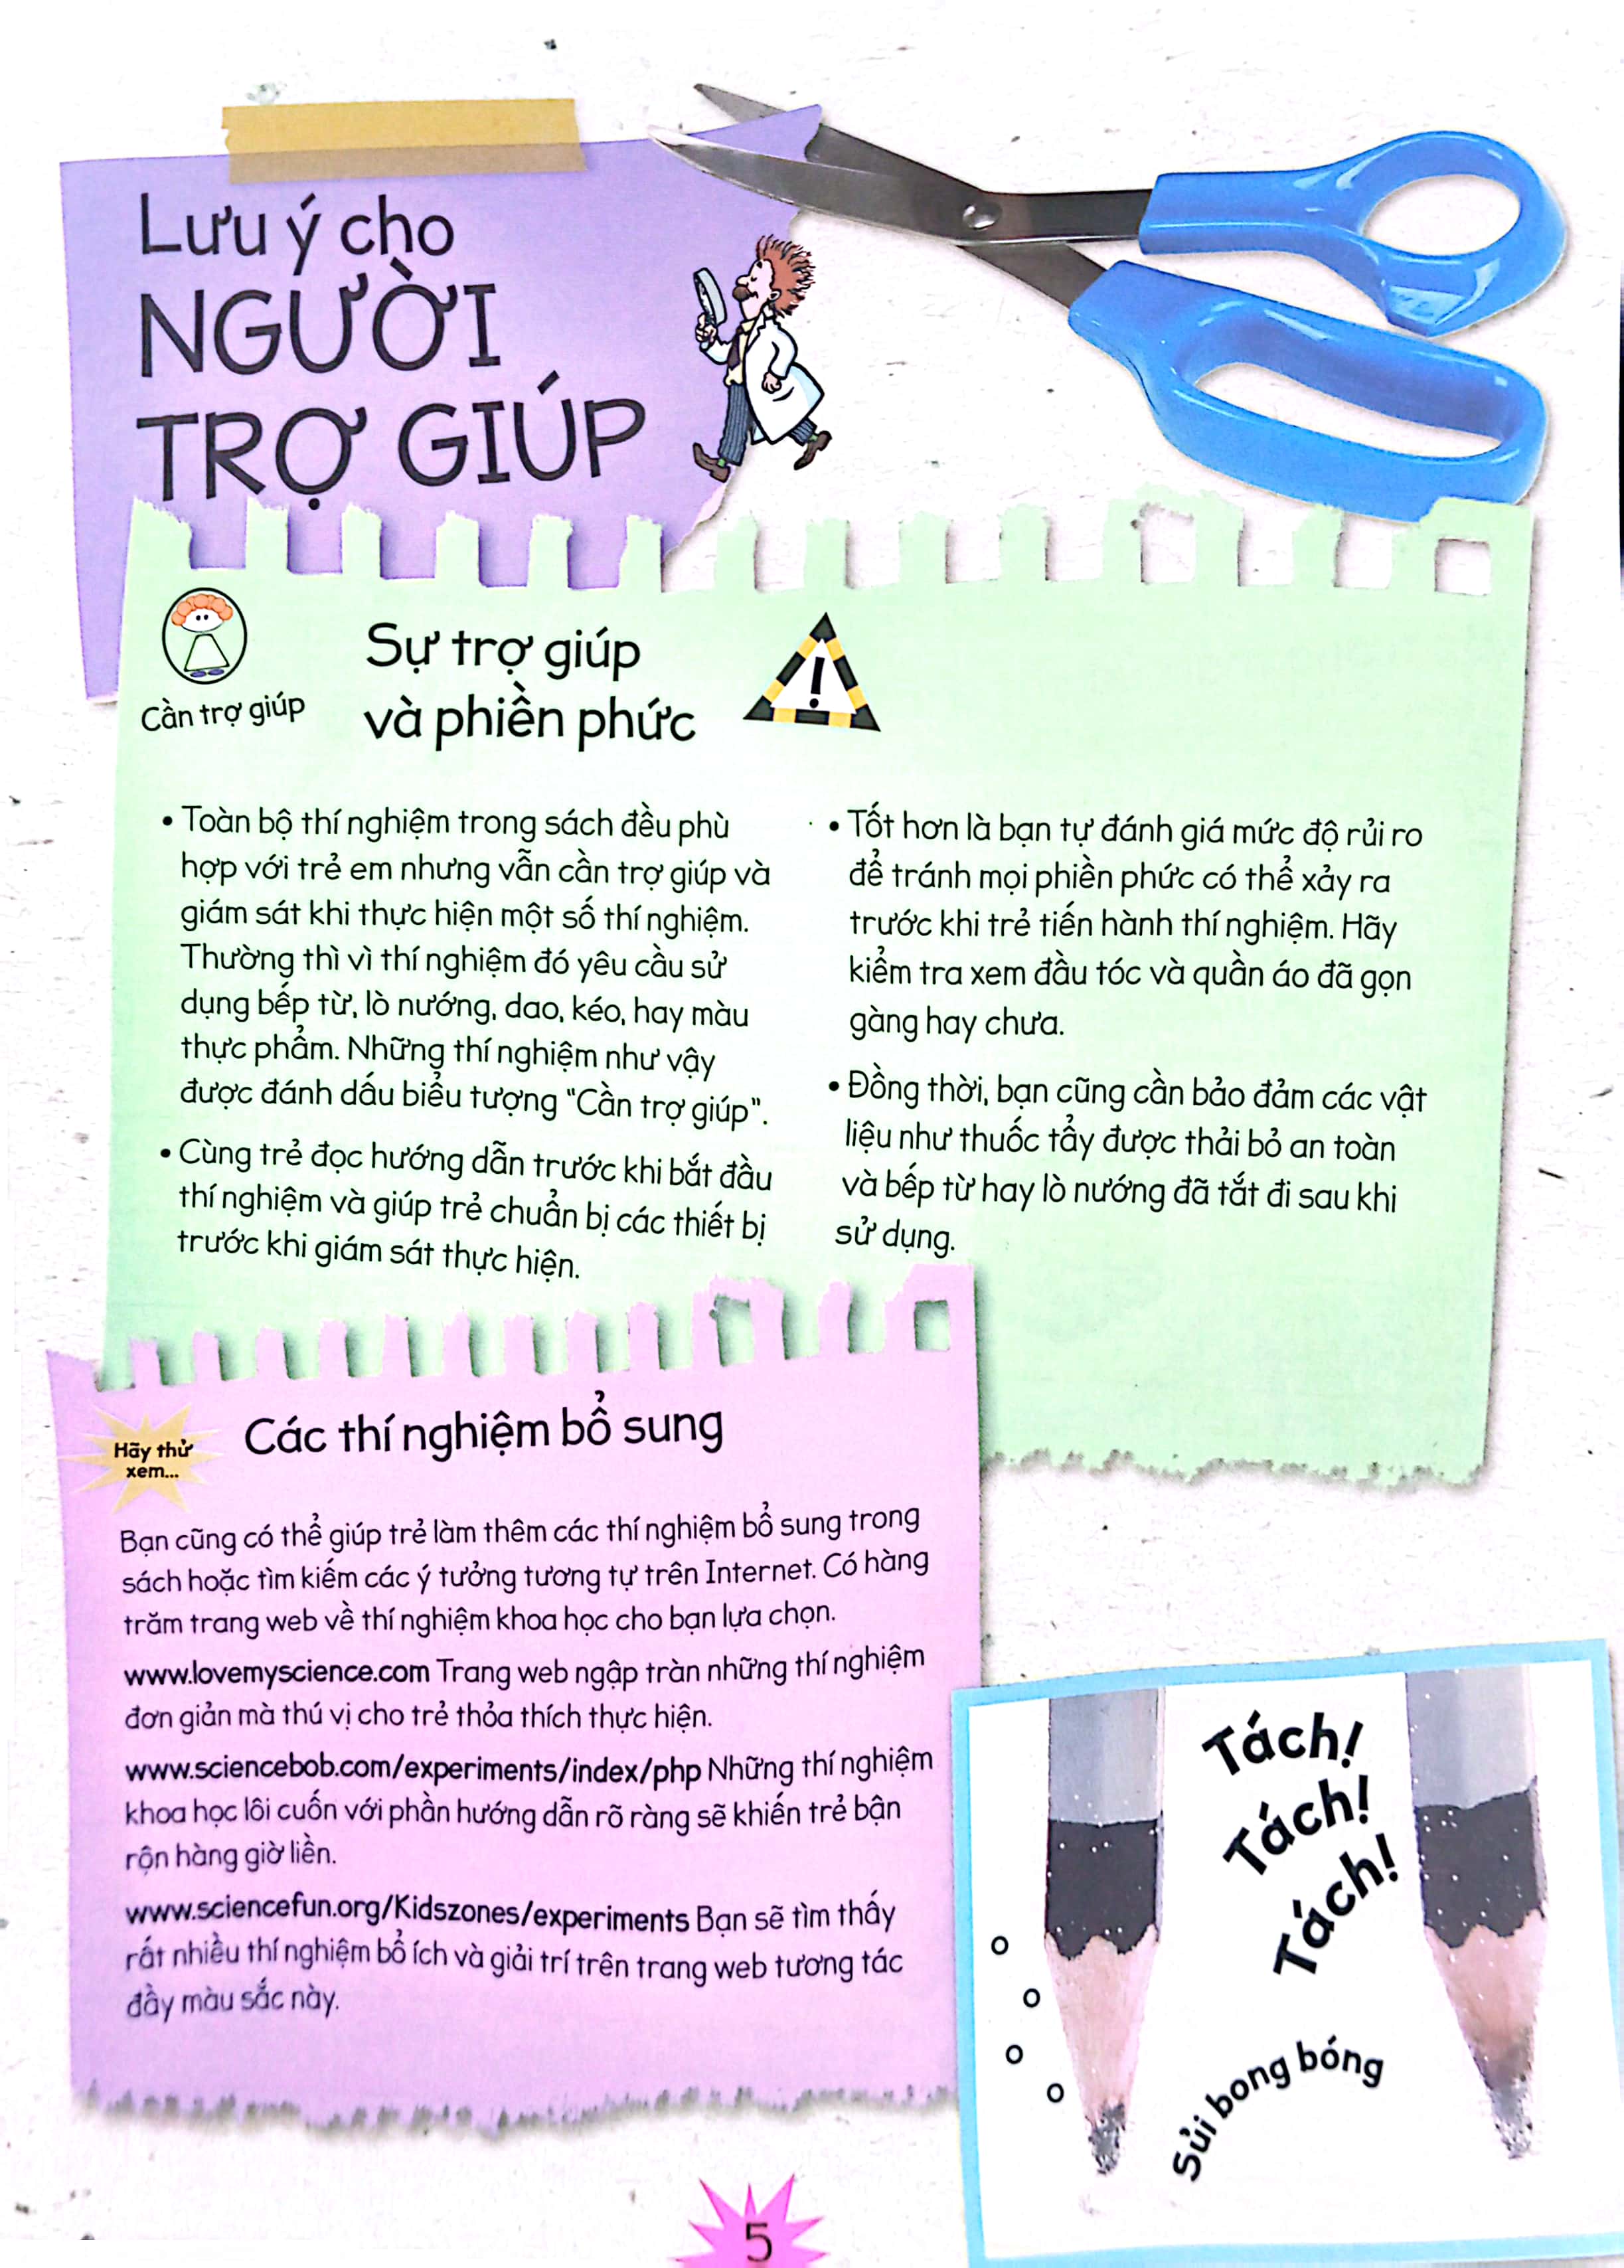 Lưu ý cho
NGƯỜI
TRỢ GIÚP
Cần trợ giúp
Sự trợ giúp
và phiền phức
!
• Toàn bộ thí nghiệm trong sách đều phù
hợp với trẻ em nhưng vẫn cần trợ giúp và
giám sát khi thực hiện một số thí nghiệm.
Thường thì vì thí nghiệm đó yêu cầu sử
dụng bếp từ, lò nướng, dao, kéo, hay màu
thực phẩm. Những thí nghiệm như vậy
được đánh dấu biểu tượng "Cần trợ giúp".
• Cùng trẻ đọc hướng dẫn trước khi bắt đầu
thí nghiệm và giúp trẻ chuẩn bị các thiết bị
trước khi giám sát thực hiện.
• Tốt hơn là bạn tự đánh giá mức độ rủi ro
để tránh mọi phiền phức có thể xảy ra
trước khi trẻ tiến hành thí nghiệm. Hãy
kiểm tra xem đầu tóc và quần áo đã gọn
gàng hay chưa.
• Đồng thời, bạn cũng cần bảo đảm các vật
liệu như thuốc tẩy được thải bỏ an toàn
và bếp từ hay lò nướng đã tắt đi sau khi
sử dụng.
Hãy thử
xem...
Các thí nghiệm bổ sung
Bạn cũng có thể giúp trẻ làm thêm các thí nghiệm bổ sung trong
sách hoặc tìm kiếm các ý tưởng tương tự trên Internet. Có hàng
trăm trang web về thí nghiệm khoa học cho bạn lựa chọn.
www.lovemyscience.com Trang web ngập tràn những thí nghiệm
đơn giản mà thú vị cho trẻ thỏa thích thực hiện.
www.sciencebob.com/experiments/index/php Những thí nghiệm
khoa học lôi cuốn với phần hướng dẫn rõ ràng sẽ khiến trẻ bận
rộn hàng giờ liền.
www.sciencefun.org/Kidszones/experiments Bạn sẽ tìm thấy
rất nhiều thí nghiệm bổ ích và giải trí trên trang web tương tác
đầy màu sắc này.
Tách!
Tách!
Tách!
Sủi bong bóng
5